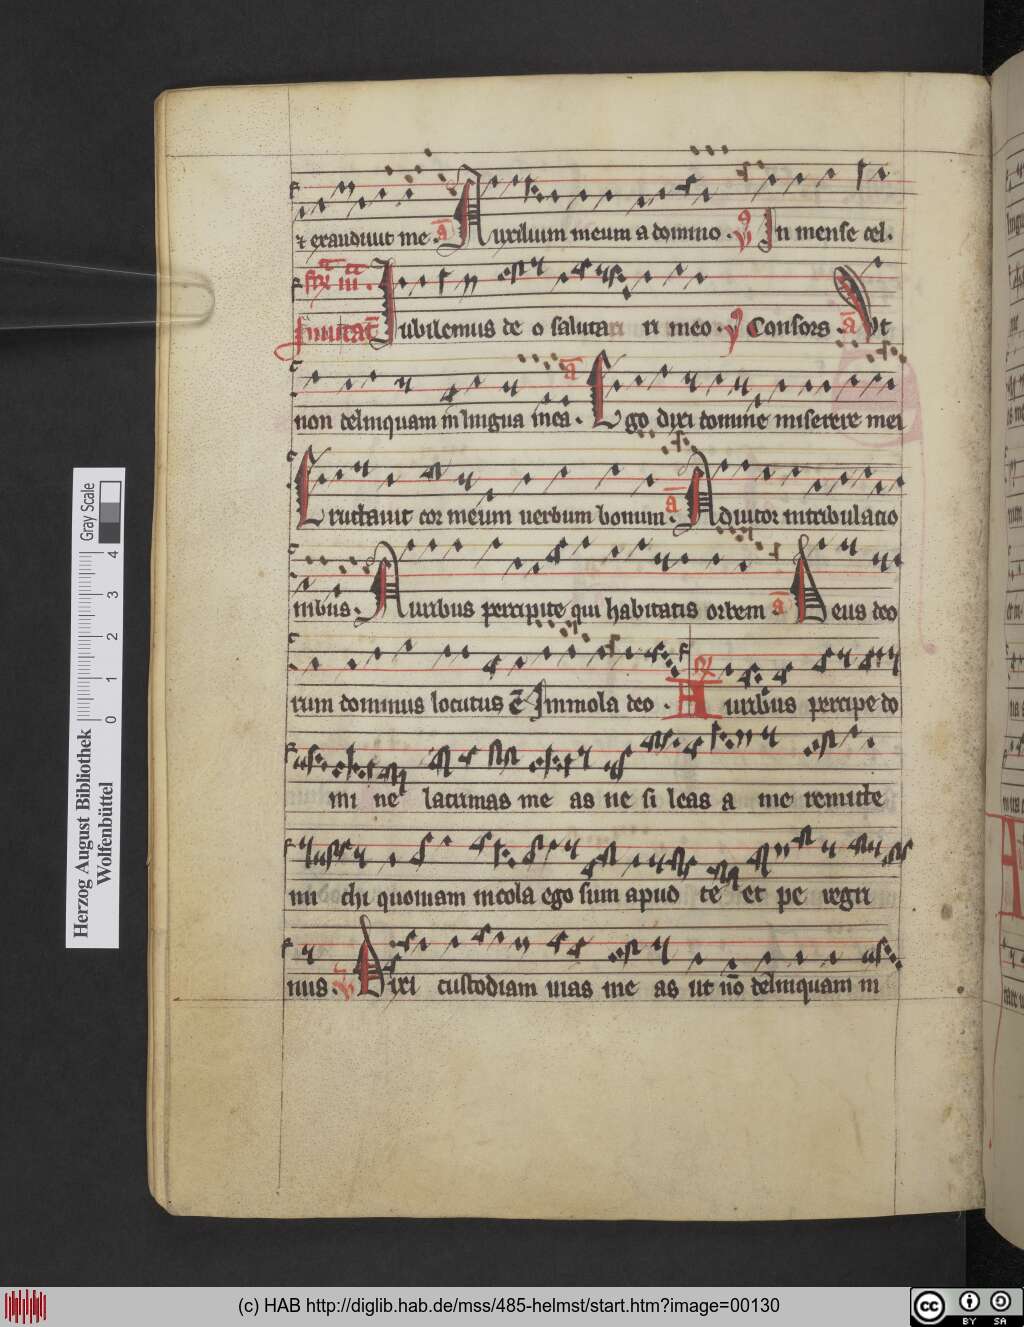 ⁊ exaudiuit me. a Auxilium meum a domino. V In mense cel.
Inuitat Iubilemus deo salutari ri meo. V Consors. a Vt
non delinquam in lingua mea. a Ego dixi domine miserere mei
Eructauit cor meum uerbum bonum. a Adiutor in tribulatio
nibus. Auribus percipite qui habitatis orbem a Deus deo
rum dominus locutus ē Immola deo. Auribus percipe do
mi ne lacrimas me as ne si leas a me remitte
mi chi quoniam incola ego sum apud te et pe regri
nus. V Dixi custodiam uias me as ut nō delinquam in
Herzog August Bibliothek
Wolfenbüttel
0 1 2 3 4
Gray Scale
(c) HAB http://diglib.hab.de/mss/485-helmst/start.htm?image=00130
cc BY SA